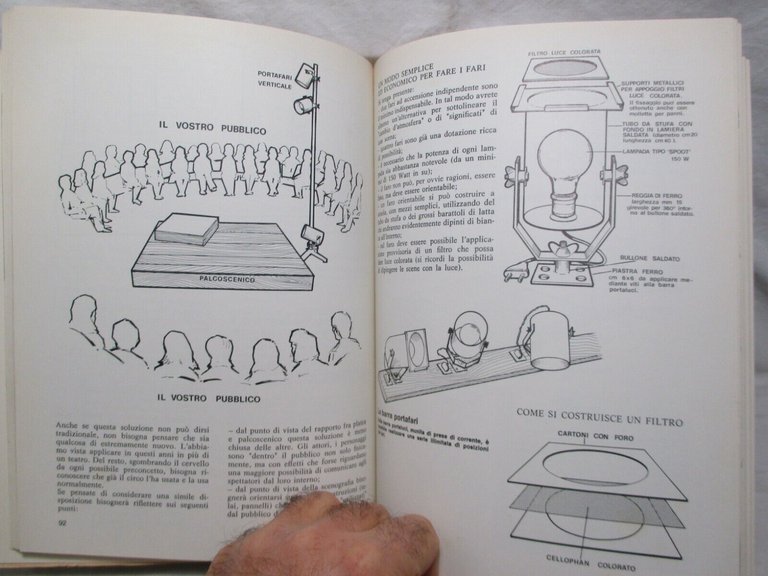 PORTAFARI
VERTICALE
IL VOSTRO PUBBLICO
PALCOSCENICO
IL VOSTRO PUBBLICO
Anche se questa soluzione non può dirsi
tradizionale, non bisogna pensare che sia
qualcosa di estremamente nuovo. L'abbia-
mo vista applicare in questi anni in più di
un teatro. Del resto, sgombrando il cervello
da ogni possibile preconcetto, bisogna ri-
conoscere che già il circo l'ha usata e la usa
normalmente.
Se pensate di considerare una simile di-
sposizione bisognerà riflettere sui seguenti
punti:
– dal punto di vista del rapporto fra platea
e palcoscenico questa soluzione è meno
chiusa delle altre. Gli attori, i personaggi
sono "dentro" il pubblico non solo fisica-
mente, ma con effetti che forse riguardano
una maggiore possibilità di comunicare agli
spettatori dal loro interno;
– dal punto di vista della scenografia biso-
gnerà orientarsi
lari, pannelli) che
dal pubblico d
92
UN MODO SEMPLICE
ED ECONOMICO PER FARE I FARI
tenga presente:
due fari ad accensione indipendente sono
indispensabile. In tal modo avrete
un'alternativa per sottolineare il
"d'atmosfera" o di "significati" di
fari sono già una dotazione ricca
possibilità;
è necessario che la potenza di ogni lam-
sia abbastanza notevole (da un mini-
di 150 Watt in su);
il faro non può, per ovvie ragioni, essere
ma deve essere orientabile;
un faro orientabile si può costruire a
con mezzi semplici, utilizzando del
da stufa o dei grossi barattoli di latta
andranno evidentemente dipinti di bian-
all'interno;
nel faro deve essere possibile l'applica-
provvisoria di un filtro che pos-
luce colorata (si ricordi la possibilità
dipingere le scene con la luce).
FILTRO LUCE COLORATA
SUPPORTI METALLICI
PER APPOGGIO FILTRI
LUCE COLORATA.
Il fissaggio può essere
ottenuto anche con
mollette per panni.
TUBO DA STUFA CON
FONDO IN LAMIERA
SALDATA (diametro cm 20
lunghezza cm 40).
LAMPADA TIPO "SPOOT"
150 W
REGGIA DI FERRO
larghezza mm 15
girevole per 360° intor-
no al bullone saldato.
BULLONE SALDATO
PIASTRA FERRO
cm 6x6 da applicare me-
diante viti alla barra
portaluci.
La barra portafari
barra portafari, munita di prese di corrente, è
realizzare una serie illimitata di posizioni
COME SI COSTRUISCE UN FILTRO
CARTONI CON FORO
CELLOPHAN COLORATO